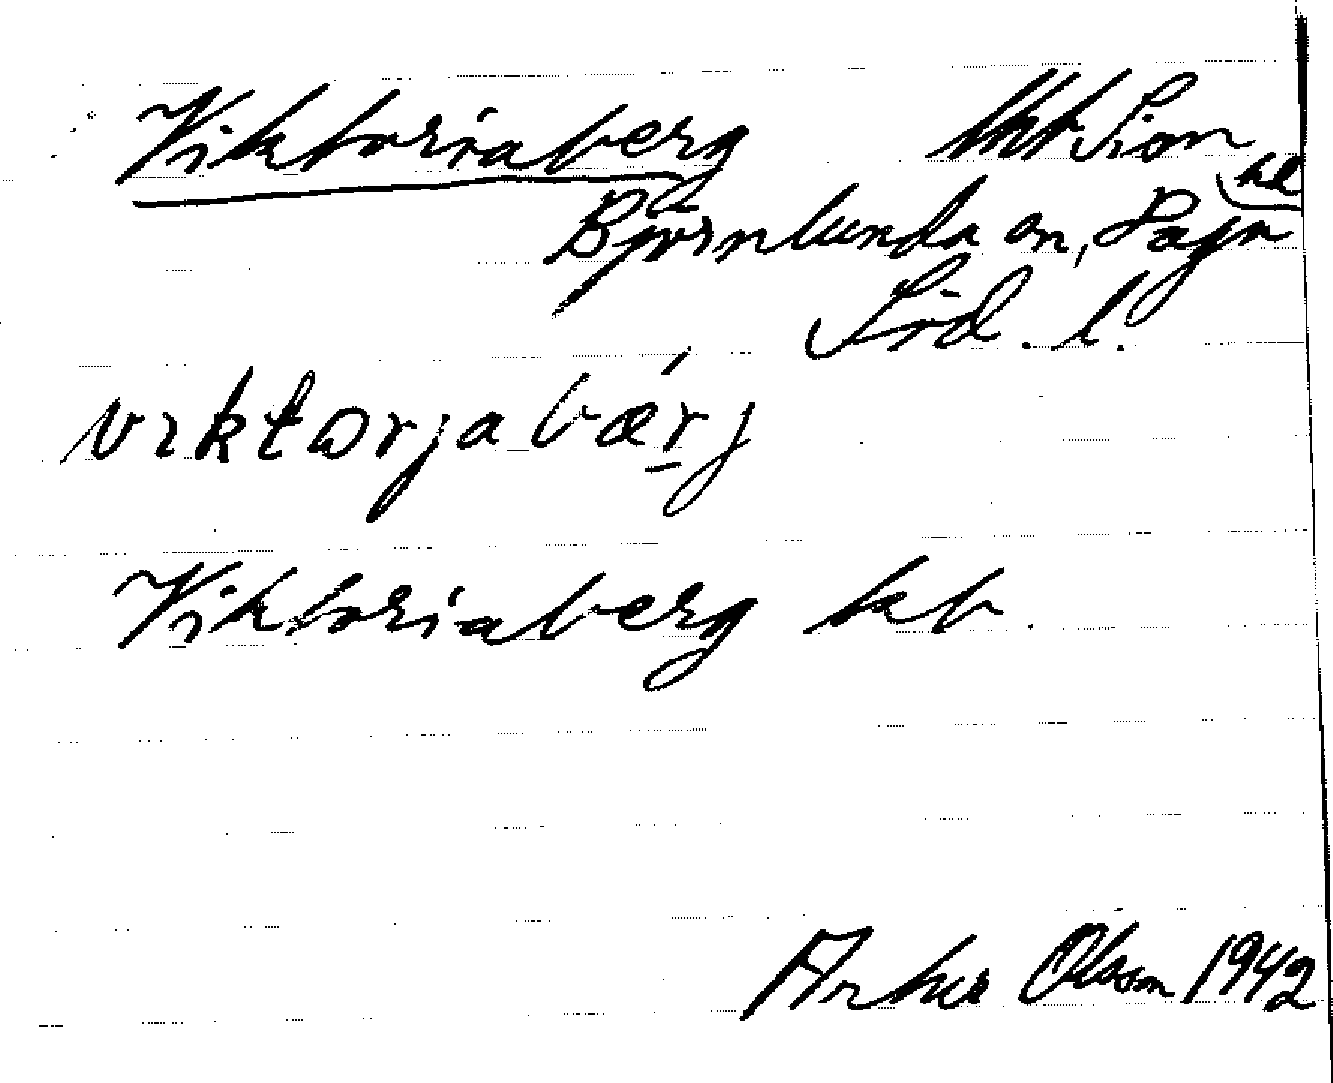 Viktoriaberg
Björnlunda sn, Daga
hd
Söd. l.
viktorjabärj
Viktoriaberg kb.
Arthur Olsson 1942